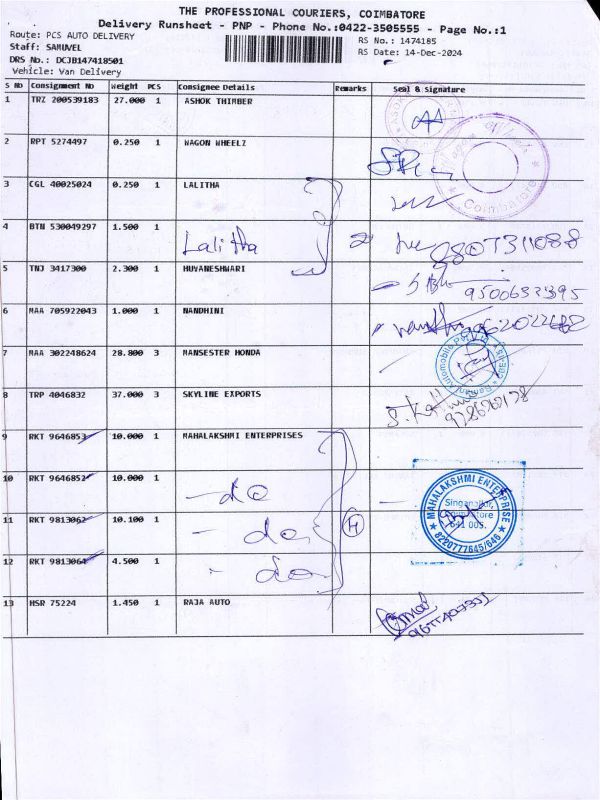 THE PROFESSIONAL COURIERS, COIMBATORE
Delivery Runsheet - PNP - Phone No.:0422-3505555 - Page No.:1
Route: PCS AUTO DELIVERY RS No.: 1474185
Staff: SAMUVEL RS Date: 14-Dec-2024
DRS No.: DCJB147418501
Vehicle: Van Delivery
S No Consignment No Weight PCS Consignee Details Remarks Seal & Signature
1 TRZ 200539183 27.000 1 ASHOK THIMBER
2 RPT 5274497 0.250 1 WAGON WHEELZ
Coimbatore
3 CGL 40025024 0.250 1 LALITHA
4 BTN 530049297 1.500 1 Lalitha 2
5 TNJ 3417300 2.300 1 HUVANESHWARI
6 MAA 705922043 1.000 1 NANDHINI
7 MAA 302248624 28.800 3 MANSESTER HONDA
8 TRP 4046832 37.000 3 SKYLINE EXPORTS
9 RKT 9646853 10.000 1 MAHALAKSHMI ENTERPRISES
10 RKT 9646852 10.000 1 -do
11 RKT 9813062 10.100 1 -do 4
12 RKT 9813064 4.500 1 -do
MAHALAKSHMI ENTERPRISE
Singanallur,
Coimbatore
641 005.
8220777645/646
13 HSR 75224 1.450 1 RAJA AUTO